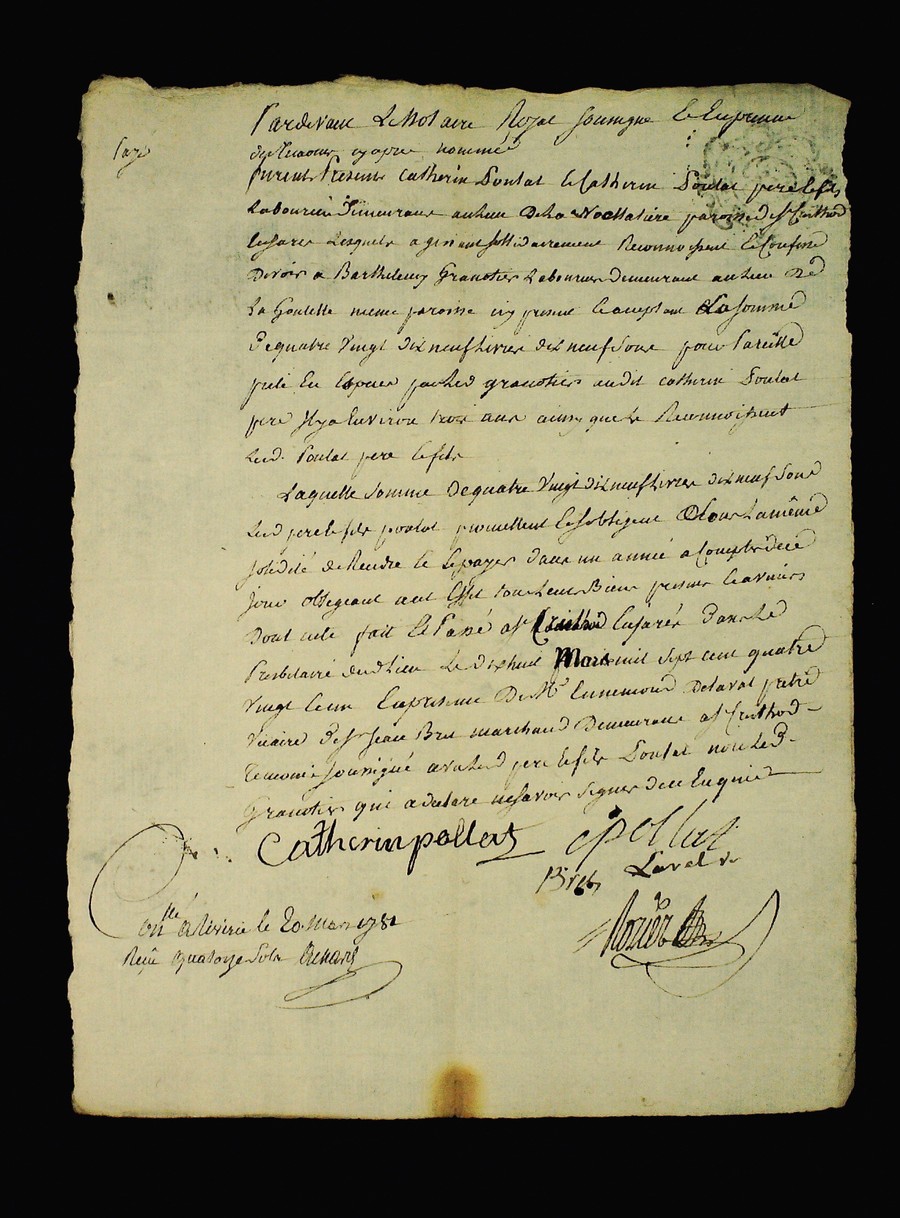 Pardevant Le Notaire Royal soussigné Et En presence
des Temoins cy apres nommés
payé
furent Presents Catherin Poulat & Catherin Poulat pere & fils
Laboureurs Demeurant au Lieu De La paroisse de St
Lesquels agissant sollidairement Reconnoissent & Confessent
Devoir a Barthelemy Granotier Laboureur Demeurant au Lieu De
La Goulette meme paroisse icy present & acceptant La somme
De quatre Vingt dix neuf Livres dix neuf sous pour Pareille
preté En Especes par Led granotier audit catherin Poulat
pere Il y a Environ trois ans ainsy que le Reconnoissent
Lesd. Poulat pere & fils
Laquelle somme De quatre Vingt dix neuf Livres dix neuf sous
Lesd pere & fils poulat promettent & s'obligent sous La même
solidité de Rendre & payer Dans un année a Compter de ce
jour obligeant a cet Effet tous Leurs Biens presents & avenirs
Dont acte fait & Passé a St Dans Le
Presbitaire dud Lieu Le dix huit Mars mil sept cent quatre
Vingt & un En presence De Mre Ennemond Delaval pretre
Vicaire & Sr Jean Bret marchand Demeurant a St
Temoins soussignés avec Lesd pere & fils Poulat non Led
Granotier qui a declaré ne savoir signer de ce Enquis
Catherin pollat cpollat
Bret Laval v
Rouier
onllé a le 20 Mars 1781
Reçu quatorze sols